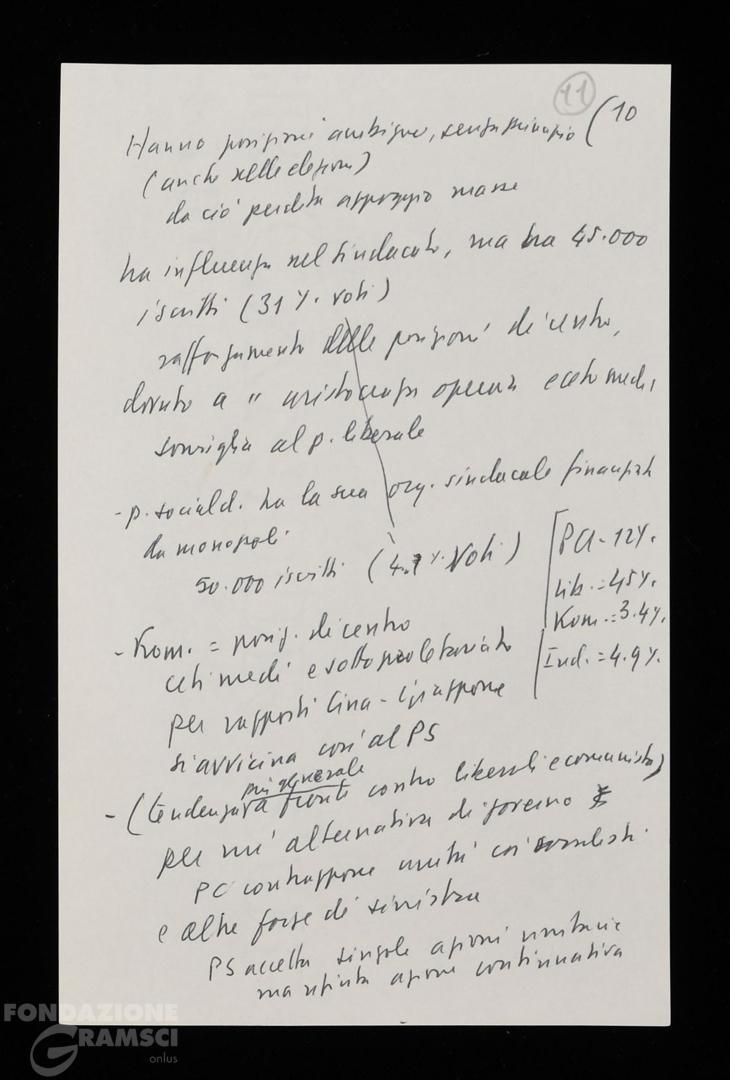 11
Hanno posizioni ambigue, senza principio (10
(anche nelle elezioni)
da ciò perdita appoggio masse
ha influenza nel sindacato, ma ha 45.000
iscritti (31 %. voti)
rafforzamento delle posizioni di centro,
dovuto a " aristocrazia operaia e ceto medi,
somiglia al p. liberale
- p. sociald. ha la sua org. sindacale finanziata
da monopoli
50.000 iscritti (4.7 %. voti)
PCI - 12%.
Lib. = 45%.
Kom. = 3.4%.
Ind. = 4.9%.
- Kom. = posiz. di centro
ceti medi e sottoproletariato
per rapporti Cina - Giappone
si avvicina così al PS
più generale
- (tendenza a fronte contro liberali e comunisti)
per un' alternativa di governo
PC contrappone unità coi socialisti
e altre forze di sinistra
PS accetta singole azioni unitarie
ma rifiuta azione continuativa
FONDAZIONE
GRAMSCI
onlus